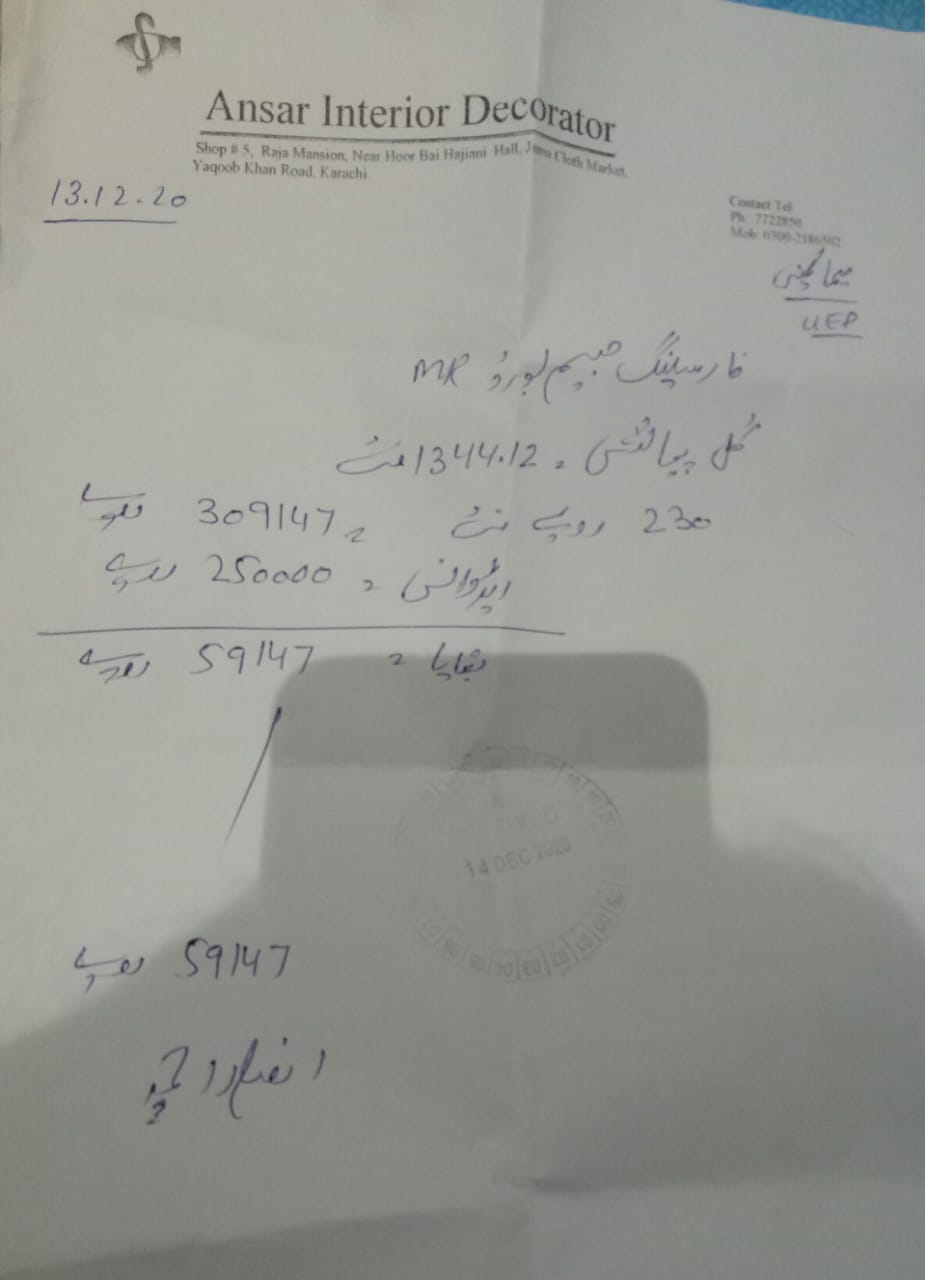 Ansar Interior Decorator
Shop # 5, Raja Mansion, Near Hoor Bai Hajiani Hall, Jama Cloth Market,
Yaqoob Khan Road, Karachi.
13.12.20
Contact Tel
Ph: 7722850
Mob: 0300-2186502
UEP
فارسیلنگ جپسم بورڈ MR
کل پیمائش = 1344.12 فٹ
230 روپے فٹ = 309147 روپے
ایڈوانس = 250000 روپے
بقایا = 59147 روپے
14 DEC 2020
59147 روپے
انصار احمد